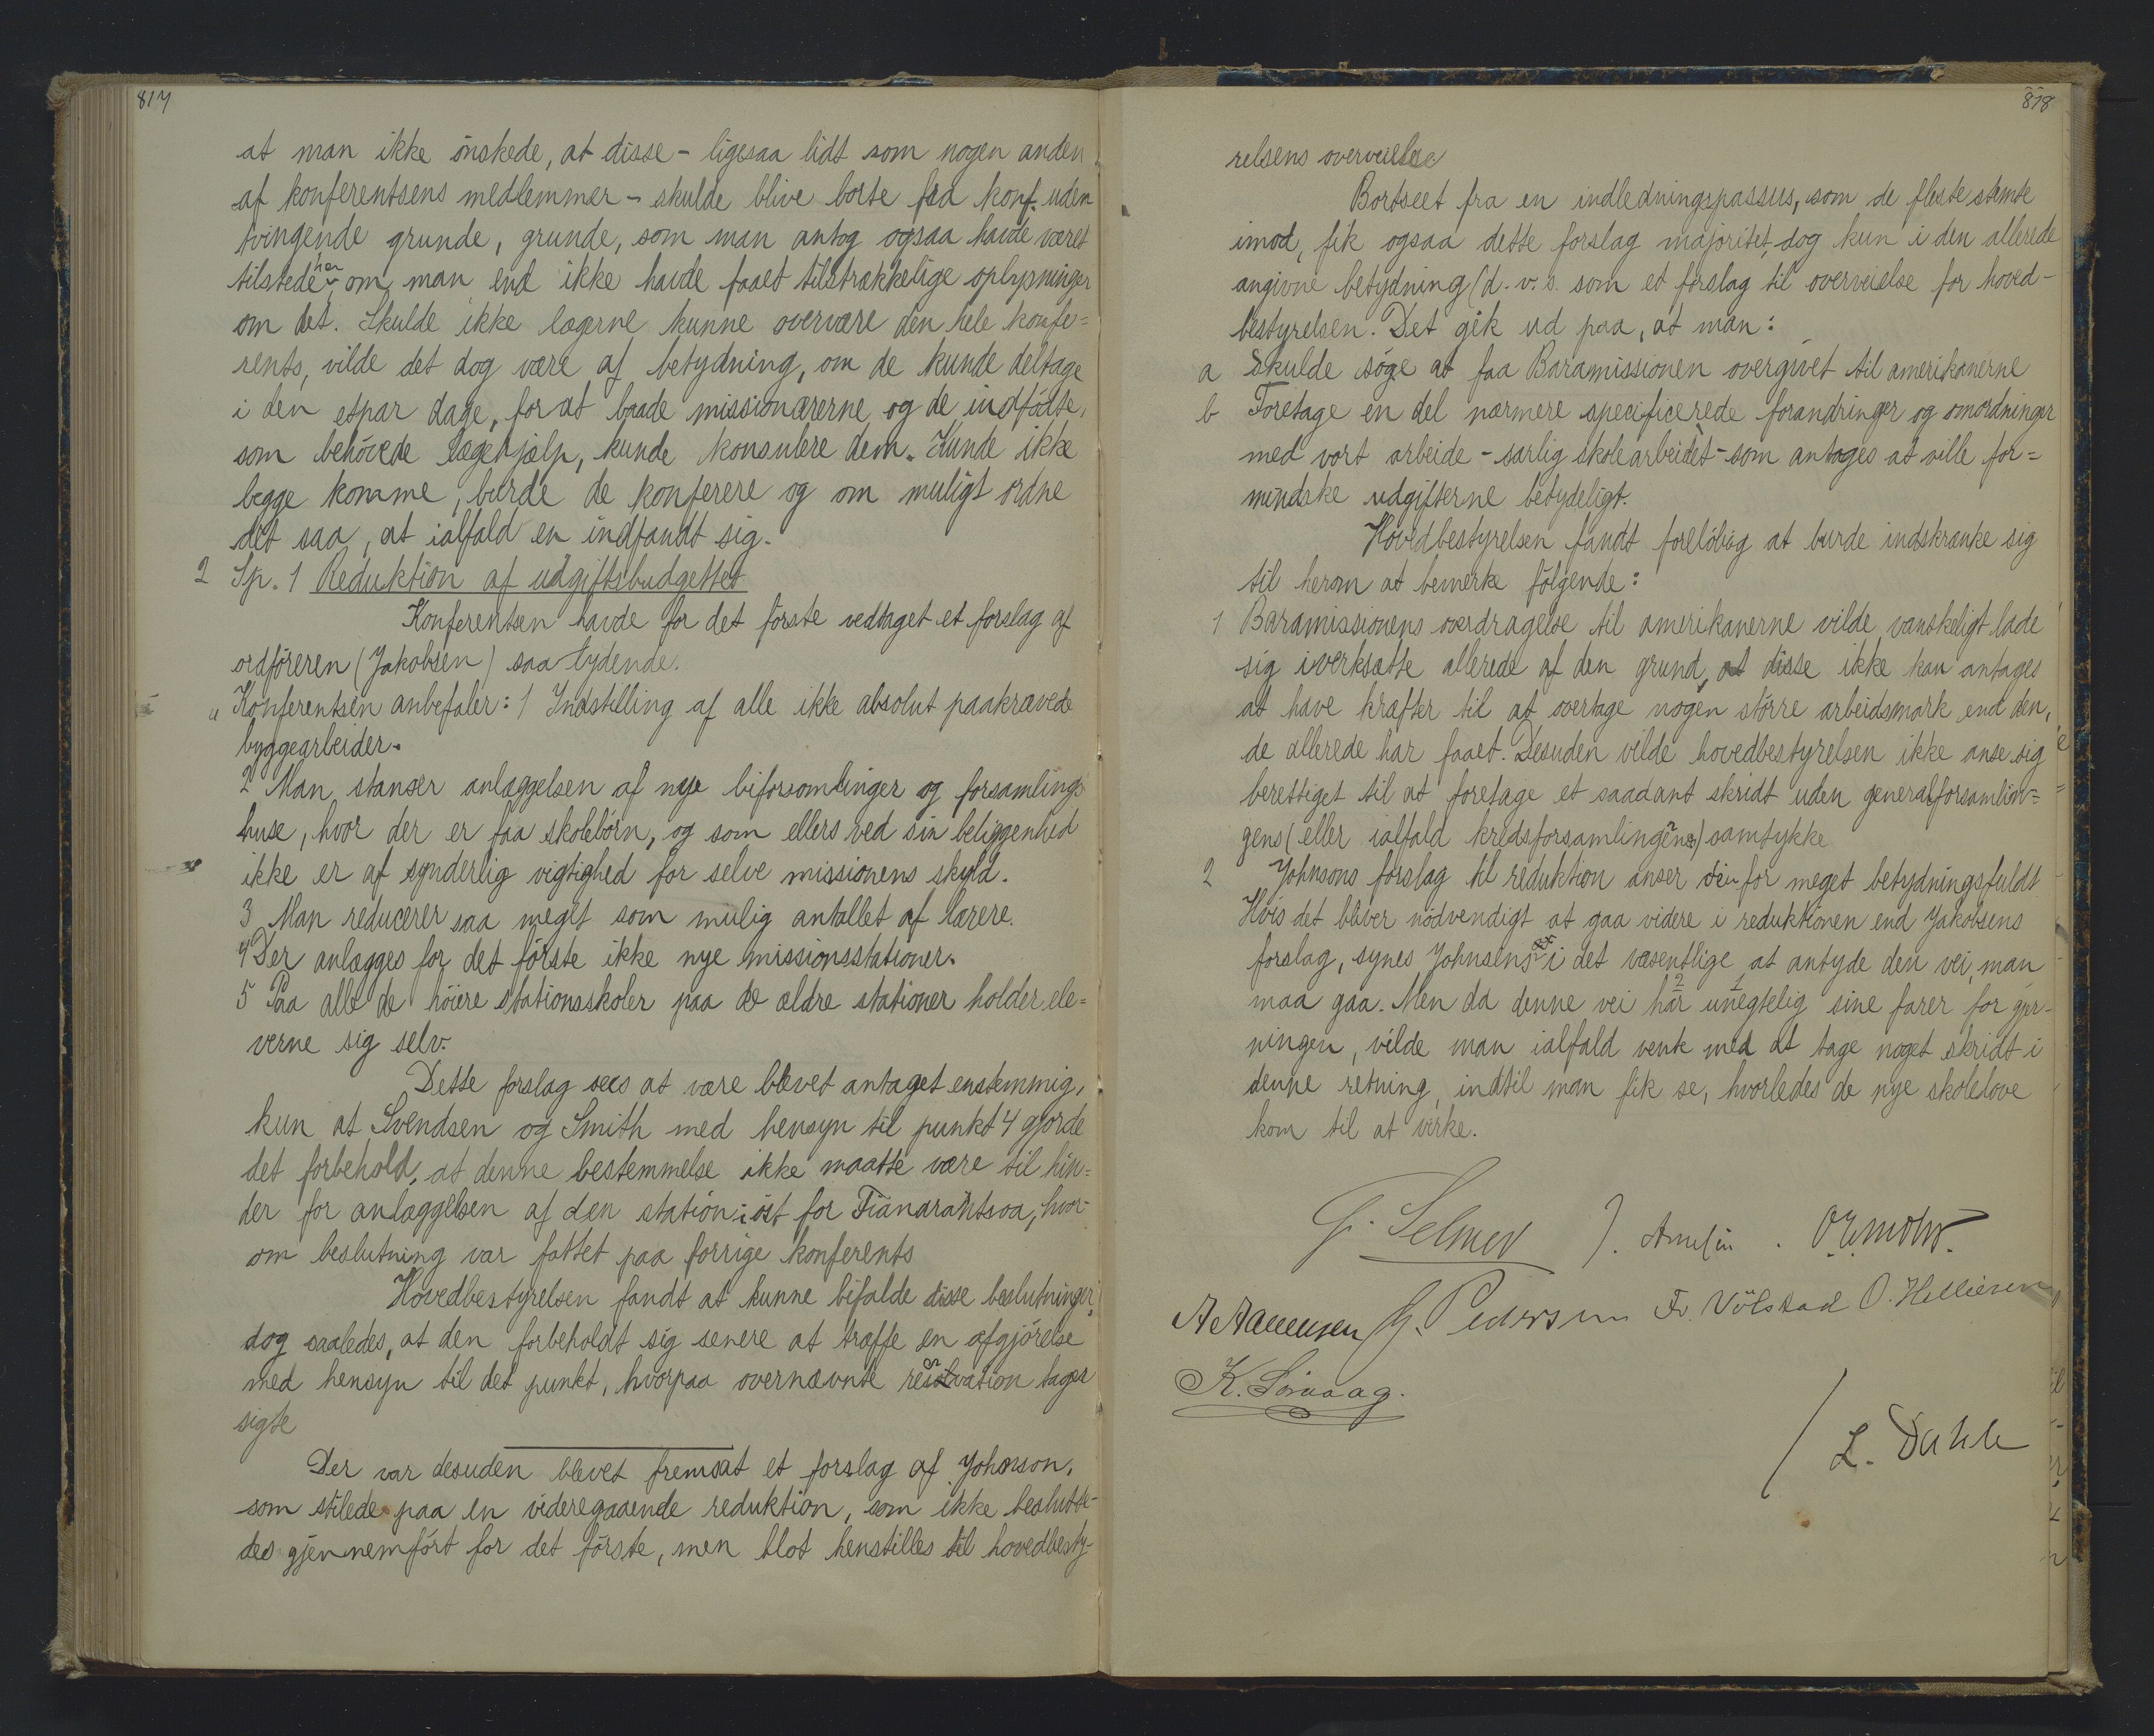 817
at man ikke önskede, at disse - ligesaa lidt som nogen anden
af konferentsens medlemmer - skulde blive borte fra konf. uden
tvingende grunde, grunde, som man antog ogsaa havde været
tilstede her, om man end ikke havde faaet tilstrækkelige oplysninger
om det. Skulde ikke lægerne kunne overvære den hele konfe=
rents, vilde det dog være af betydning, om de kunde deltage
i den etpar dage, forat baade missionærerne og de indfödte,
som behövede lægehjælp, kunde konsulere dem. Kunde ikke
begge komme, burde de konferere og om muligt ordne
det saa, at ialfald en indfandt sig.
2 Sp. 1 Reduktion af udgiftsbudgettet
Konferentsen havde for det förste vedtaget et forslag af
ordföreren (Jakobsen) saa lydende.
"Konferentsen anbefaler: 1 Indstilling af alle ikke absolut paakrævede
byggearbeider.
2 Man stanser anlæggelsen af nye biforsamlinger og forsamlings
huse, hvor der er faa skolebörn, og som ellers ved sin beliggenhed
ikke er af synderlig vigtighed for selve missionens skyld.
3 Man reducerer saa meget som mulig antallet af lærere.
4 Der anlægges for det förste ikke nye missionsstationer.
5 Paa alle de höiere stationsskoler paa de ældre stationer holder ele=
verne sig selv.
Dette forslag sees at være blevet antaget enstemmig,
kun at Svendsen og Smith med hensyn til punkt 4 gjorde
det forbehold, at denne bestemmelse ikke maatte være til hin=
der for anlæggelsen af den station i öst for Fianarantsoa, hvor-
om beslutning var fattet paa forrige konferents
Hovedbestyrelsen fandt at kunne bifalde disse beslutninger,
dog saaledes, at den forbeholdt sig senere at træffe en afgjörelse
med hensyn til det punkt, hvorpaa overnævnte reservation tager
sigte
Der var desuden blevet fremsat et forslag af Johnson,
som stilede paa en videregaaende reduktion, som ikke beslutte-
des gjennemfört for det förste, men blot henstilles til hovedbesty-
818
relsens overveielse
Bortseet fra en indledningspassus, som de fleste stemte
imod, fik ogsaa dette forslag majoritet, dog kun i den allerede
angivne betydning (d. v. s. som et forslag til overveielse for hoved-
bestyrelsen. Det gik ud paa, at man:
a Skulde söge at faa Baramissionen overgivet til amerikanerne
b Foretage en del nærmere specificerede forandringer og omordninger
med vort arbeide - særlig skolearbeidet - som antages at ville for=
mindske udgifterne betydeligt.
Hovedbestyrelsen fandt forelöbig at burde indskrænke sig
til herom at bemerke fölgende:
1 Baramissionens overdragelse til amerikanerne vilde vanskeligt lade
sig iverksætte allerede af den grund, at disse ikke kan antages
at have kræfter til at overtage nogen större arbeidsmark end den,
de allerede har faaet. Desuden vilde hovedbestyrelsen ikke anse sig
berettiget til at foretage et saadant skridt uden generalforsamlin=
gens (eller ialfald kredsforsamlingens) samtykke
2 Johnsons forslag til reduktion anser for meget betydningsfuldt
Hvis det bliver nödvendigt at gaa videre i reduktionen end Jakobsens
forslag, synes Johnsens i det væsentlige at antyde den vei, man
maa gaa. Men da denne vei har unegtelig sine farer for gjer-
ningen, vilde man ialfald vente med at tage noget skridt i
denne retning, indtil man fik se, hvorledes de nye skolelove
kom til at virke.
G. Selmer
A Aanensen G. Pedersen Fr. Völstad O. Helliesen
K. Sirnaag.
L. Dahle